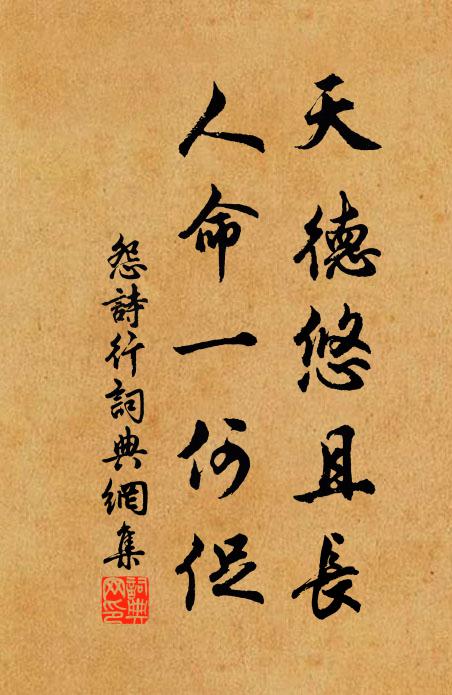 天德悠且長
人命一何促
怨詩行詞典網集
詞典
网印